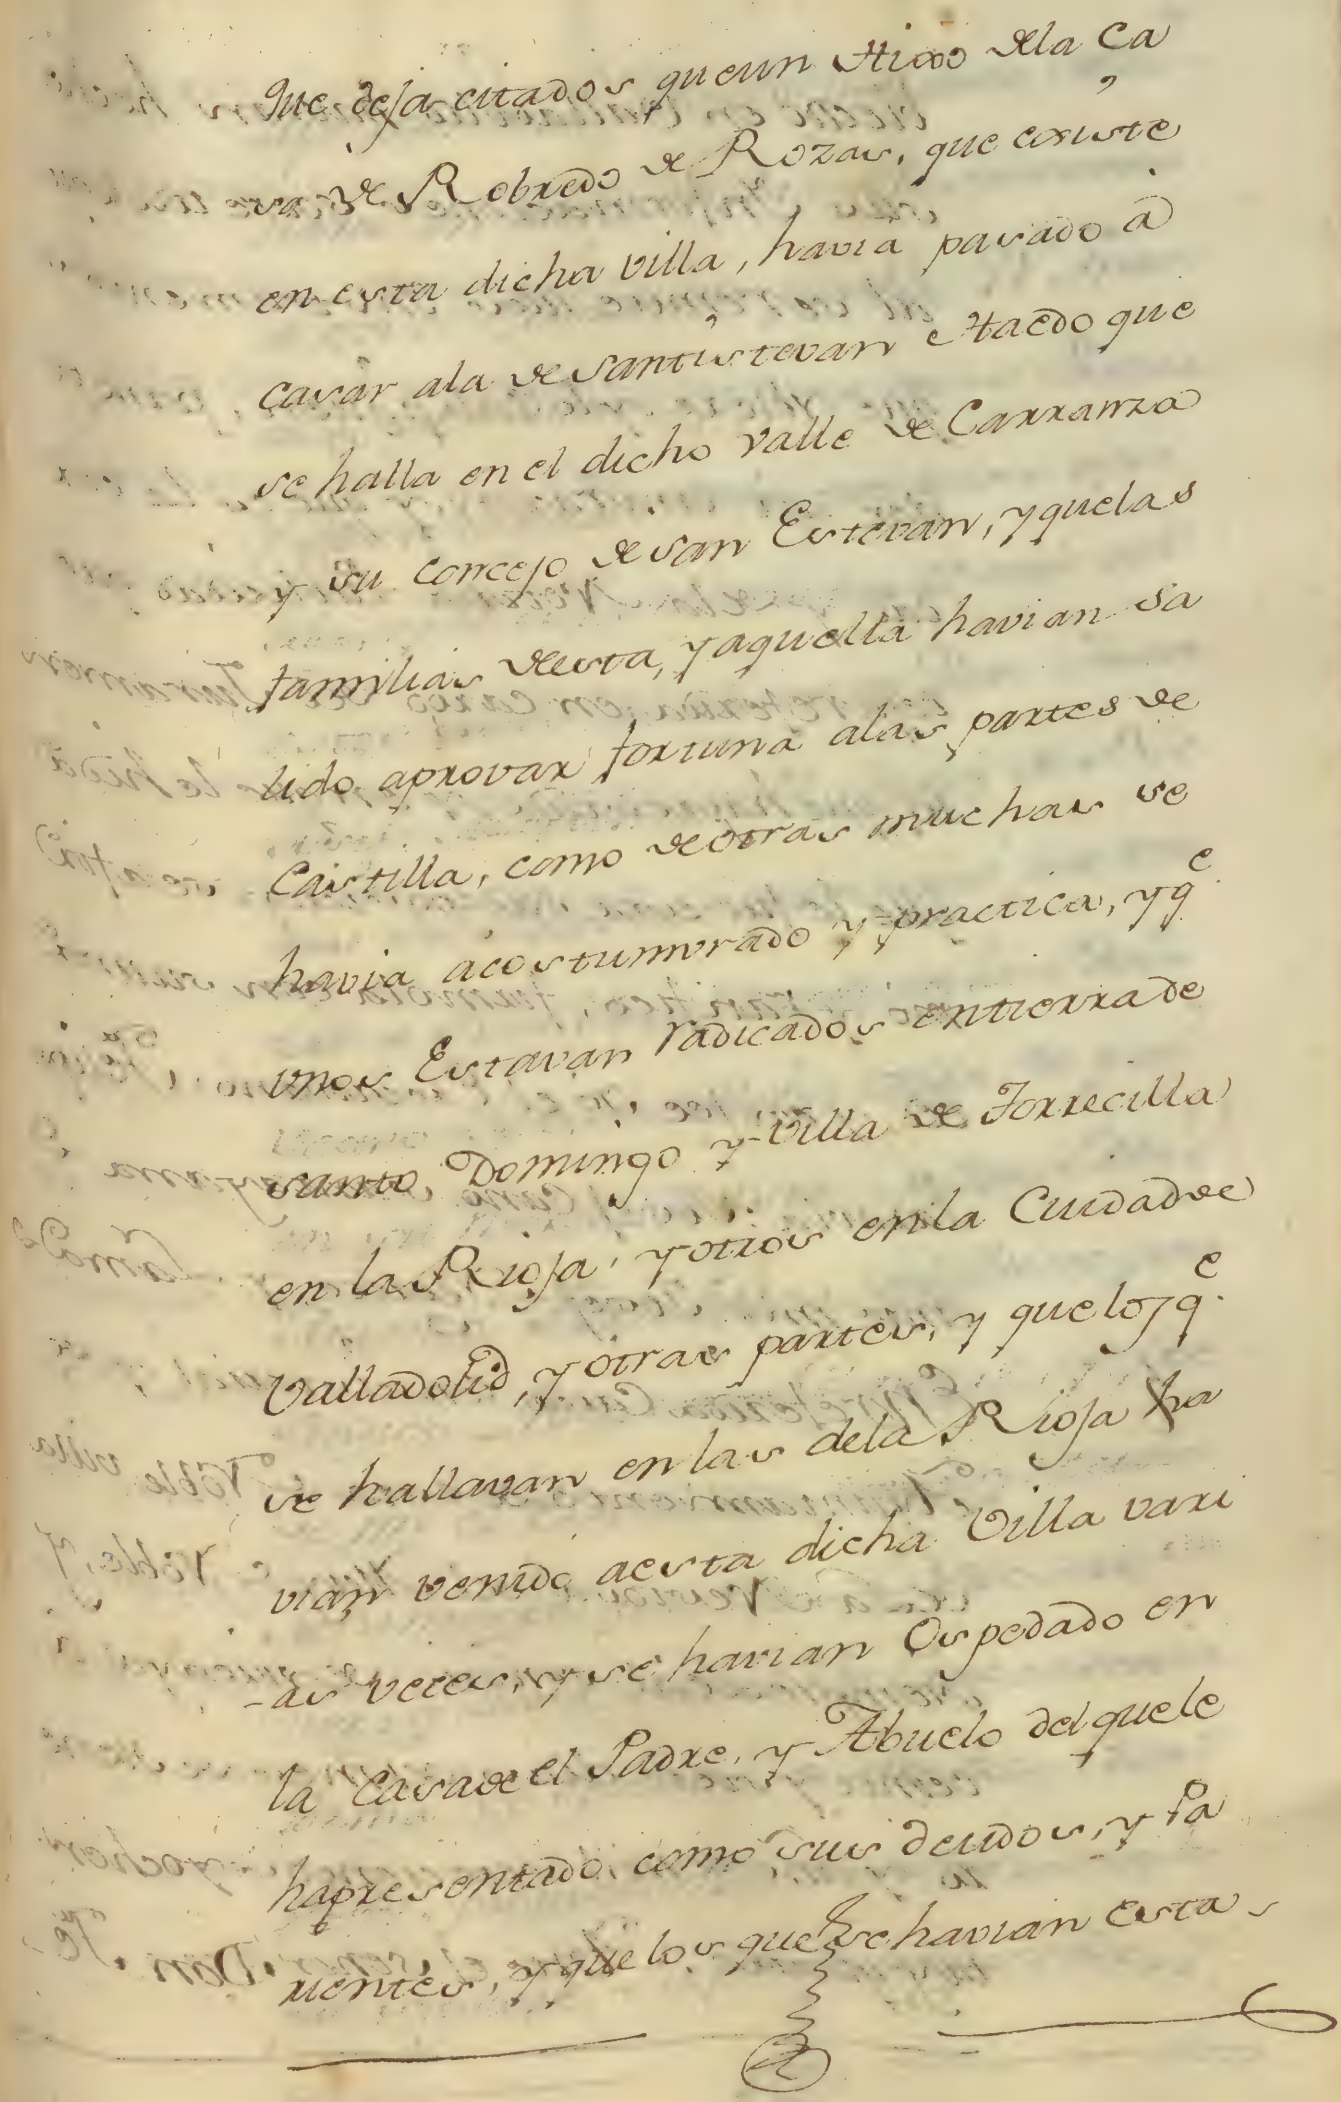 que deja citados, que un Hixo dela Ca
sa de Robredo de Rozas, que existe
en esta dicha Villa, havia pasado â
casar ala de Santistevan Haedo que
se halla en el dicho Valle de Carranza
y su Concejo de San Estevan, y quelas
familias de esta, y aquella havian sa
lido aprovar fortuna alas partes de
Castilla, como de otras muchas se
havia acostumvrado y practica, y q.e
unos Estavan radicados entierra de
Santo Domingo y Villa de Torrecilla
en la Rioja, y otros en la Ciudad de
Valladolid, y otras partes, y quelos q.e
se hallavan en las dela Rioja ha
vian venido aesta dicha Villa vari
-as veces, y se havian Ospedado en
la Casa de el Padre, y Abuelo del quele
hapresentado, como sus deudos, y Pa
rientes, y que los que se havian esta-